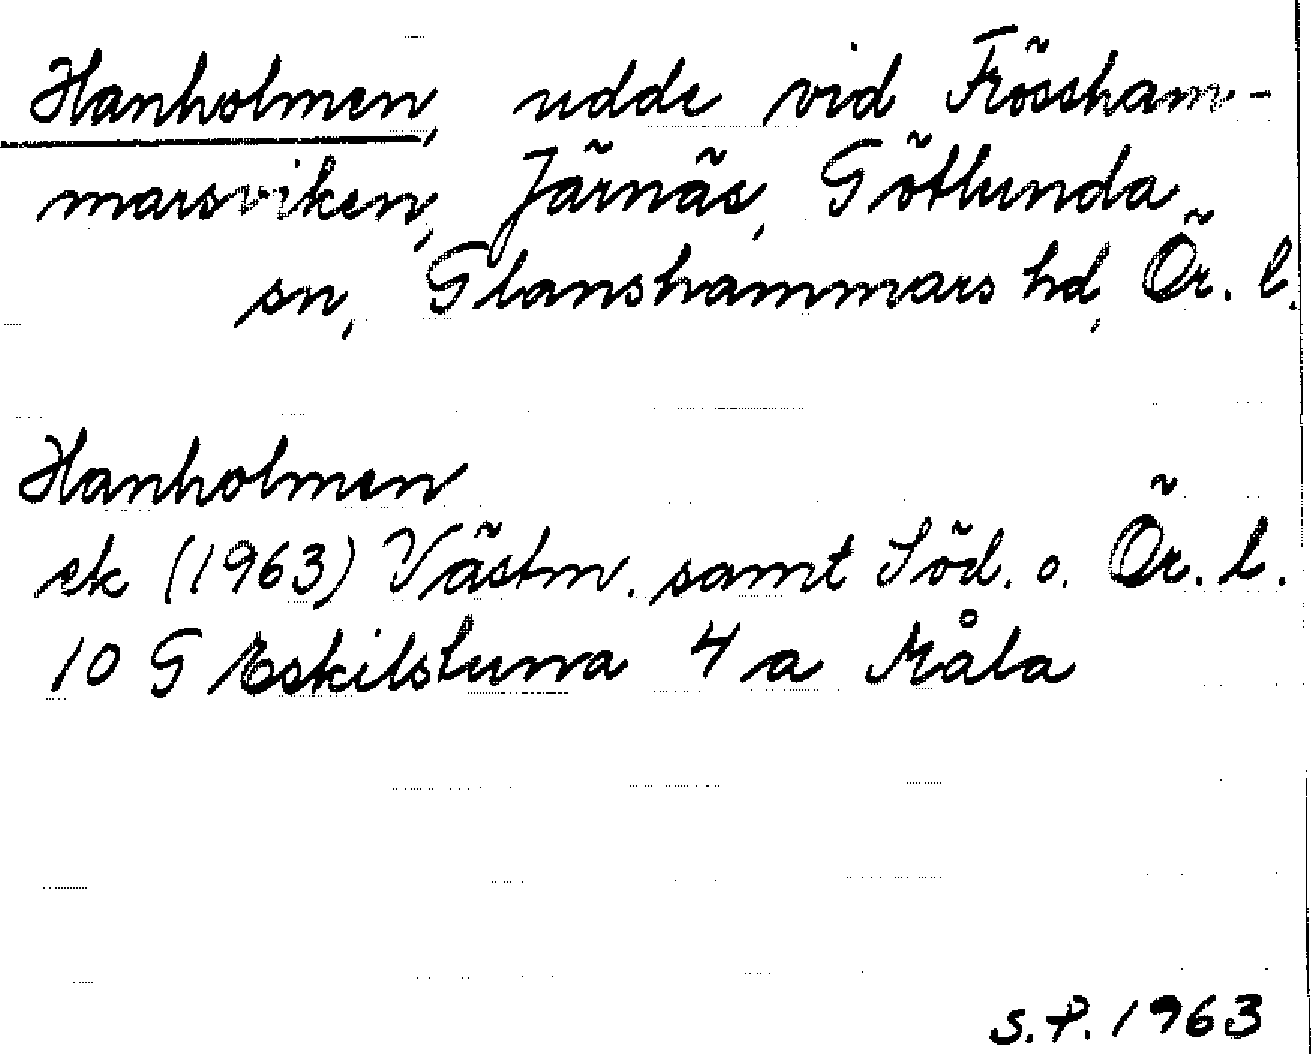 Hanholmen, udde vid Frössham-
marsviken, Järnäs, Götlunda
sn, Glanshammars hd, Ör. l.
Hanholmen
ek (1963) Västm. samt Söd. o. Ör. l.
10 G Eskilstuna 4 a Måla
S.P. 1963